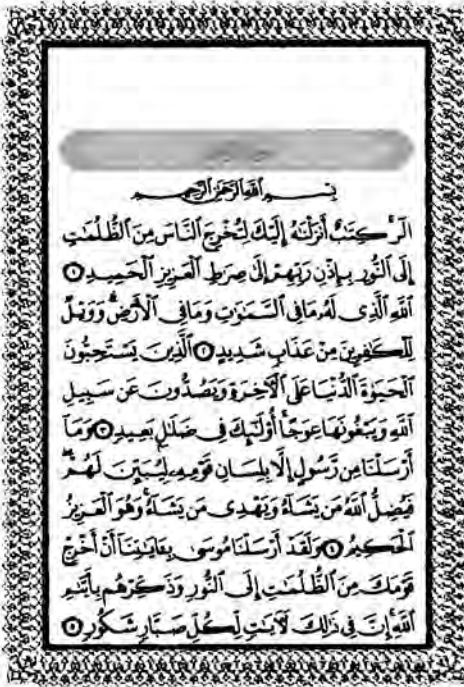 بِسْمِ ٱللَّهِ ٱلرَّحْمَٰنِ ٱلرَّحِيمِ
الٓر ۚ كِتَٰبٌ أَنزَلْنَٰهُ إِلَيْكَ لِتُخْرِجَ ٱلنَّاسَ مِنَ ٱلظُّلُمَٰتِ
إِلَى ٱلنُّورِ بِإِذْنِ رَبِّهِمْ إِلَىٰ صِرَٰطِ ٱلْعَزِيزِ ٱلْحَمِيدِ ١
ٱللَّهِ ٱلَّذِى لَهُۥ مَا فِى ٱلسَّمَٰوَٰتِ وَمَا فِى ٱلْأَرْضِ ۗ وَوَيْلٌ
لِّلْكَٰفِرِينَ مِنْ عَذَابٍ شَدِيدٍ ٢ ٱلَّذِينَ يَسْتَحِبُّونَ
ٱلْحَيَوٰةَ ٱلدُّنْيَا عَلَى ٱلْءَاخِرَةِ وَيَصُدُّونَ عَن سَبِيلِ
ٱللَّهِ وَيَبْغُونَهَا عِوَجًا ۚ أُو۟لَٰٓئِكَ فِى ضَلَٰلٍۭ بَعِيدٍ ٣ وَمَآ
أَرْسَلْنَا مِن رَّسُولٍ إِلَّا بِلِسَانِ قَوْمِهِۦ لِيُبَيِّنَ لَهُمْ ۖ
فَيُضِلُّ ٱللَّهُ مَن يَشَآءُ وَيَهْدِى مَن يَشَآءُ ۚ وَهُوَ ٱلْعَزِيزُ
ٱلْحَكِيمُ ٤ وَلَقَدْ أَرْسَلْنَا مُوسَىٰ بِـَٔايَٰتِنَآ أَنْ أَخْرِجْ
قَوْمَكَ مِنَ ٱلظُّلُمَٰتِ إِلَى ٱلنُّورِ وَذَكِّرْهُم بِأَيَّىٰمِ
ٱللَّهِ ۚ إِنَّ فِى ذَٰلِكَ لَءَايَٰتٍ لِّكُلِّ صَبَّارٍ شَكُورٍ ٥